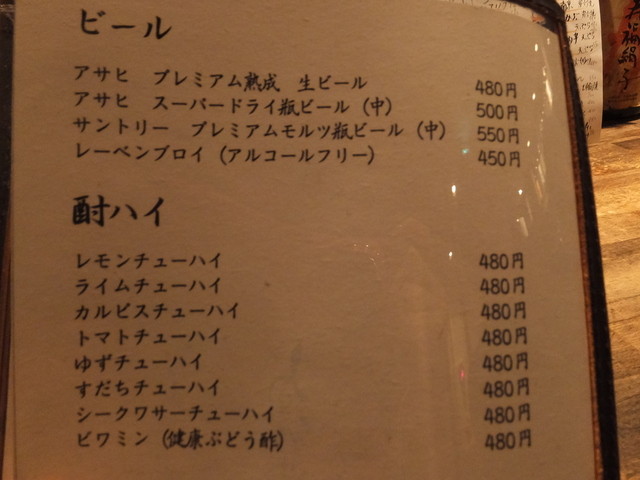 ビール
アサヒ プレミアム熟成 生ビール 480円
アサヒ スーパードライ瓶ビール(中) 500円
サントリー プレミアムモルツ瓶ビール(中) 550円
レーベンブロイ(アルコールフリー) 450円
酎ハイ
レモンチューハイ 480円
ライムチューハイ 480円
カルピスチューハイ 480円
トマトチューハイ 480円
ゆずチューハイ 480円
すだちチューハイ 480円
シークワサーチューハイ 480円
ビワミン(健康ぶどう酢) 480円